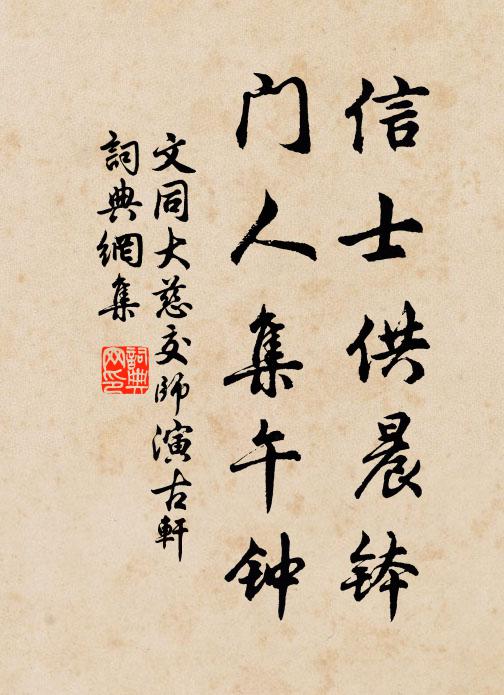 信士供晨钵
门人集午钟
文同大慈交师演古軒
詞典網集
詞典网印